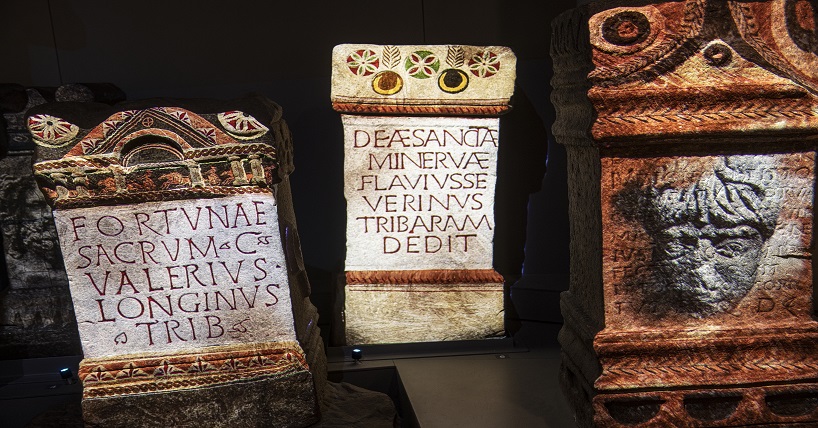 FORTVNAE
SACRVM ☙ C ☙
VALERIVS ·
LONGINVS
☙ TRIB ☙
DEÆSANCTÆ
MINERVÆ
FLAVIVSSE
VERINVS
TRIBARAM
DEDIT